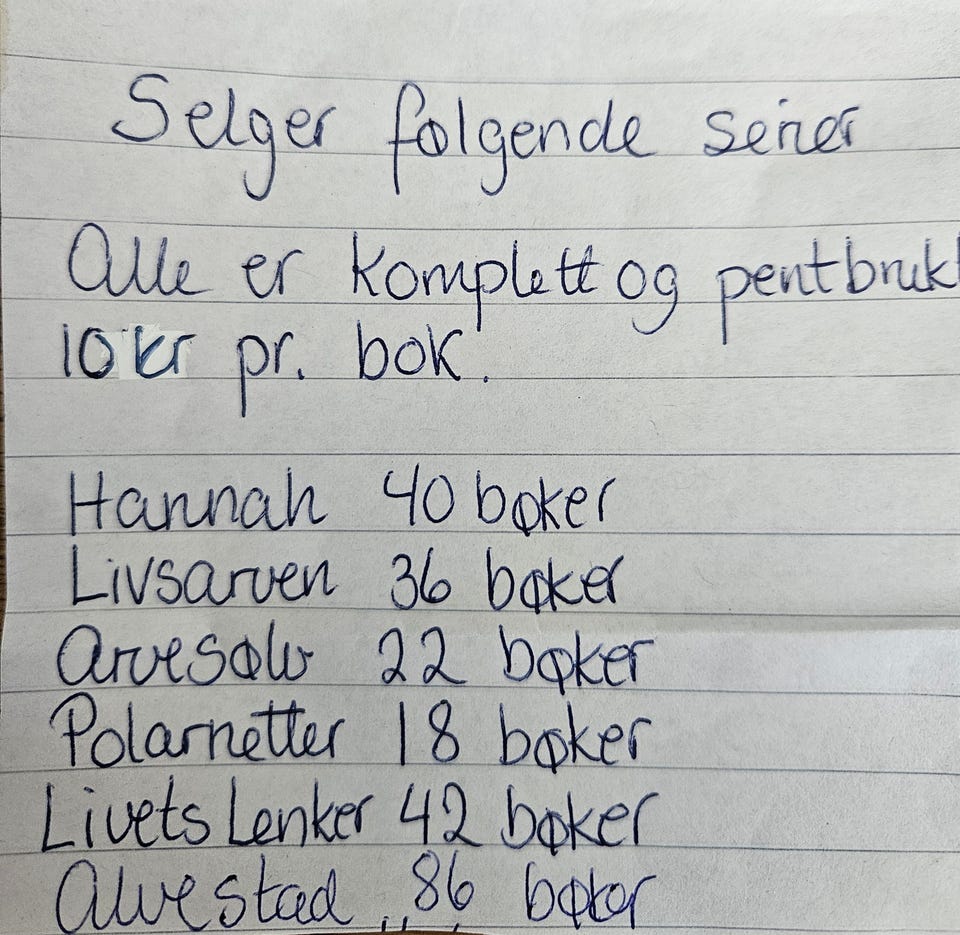 Selger følgende serier
Alle er komplett og pent brukt
10 kr pr. bok.
Hannah 40 bøker
Livsarven 36 bøker
Arvesølv 22 bøker
Polarnetter 18 bøker
Livets Lenker 42 bøker
Alvestad 86 bøker